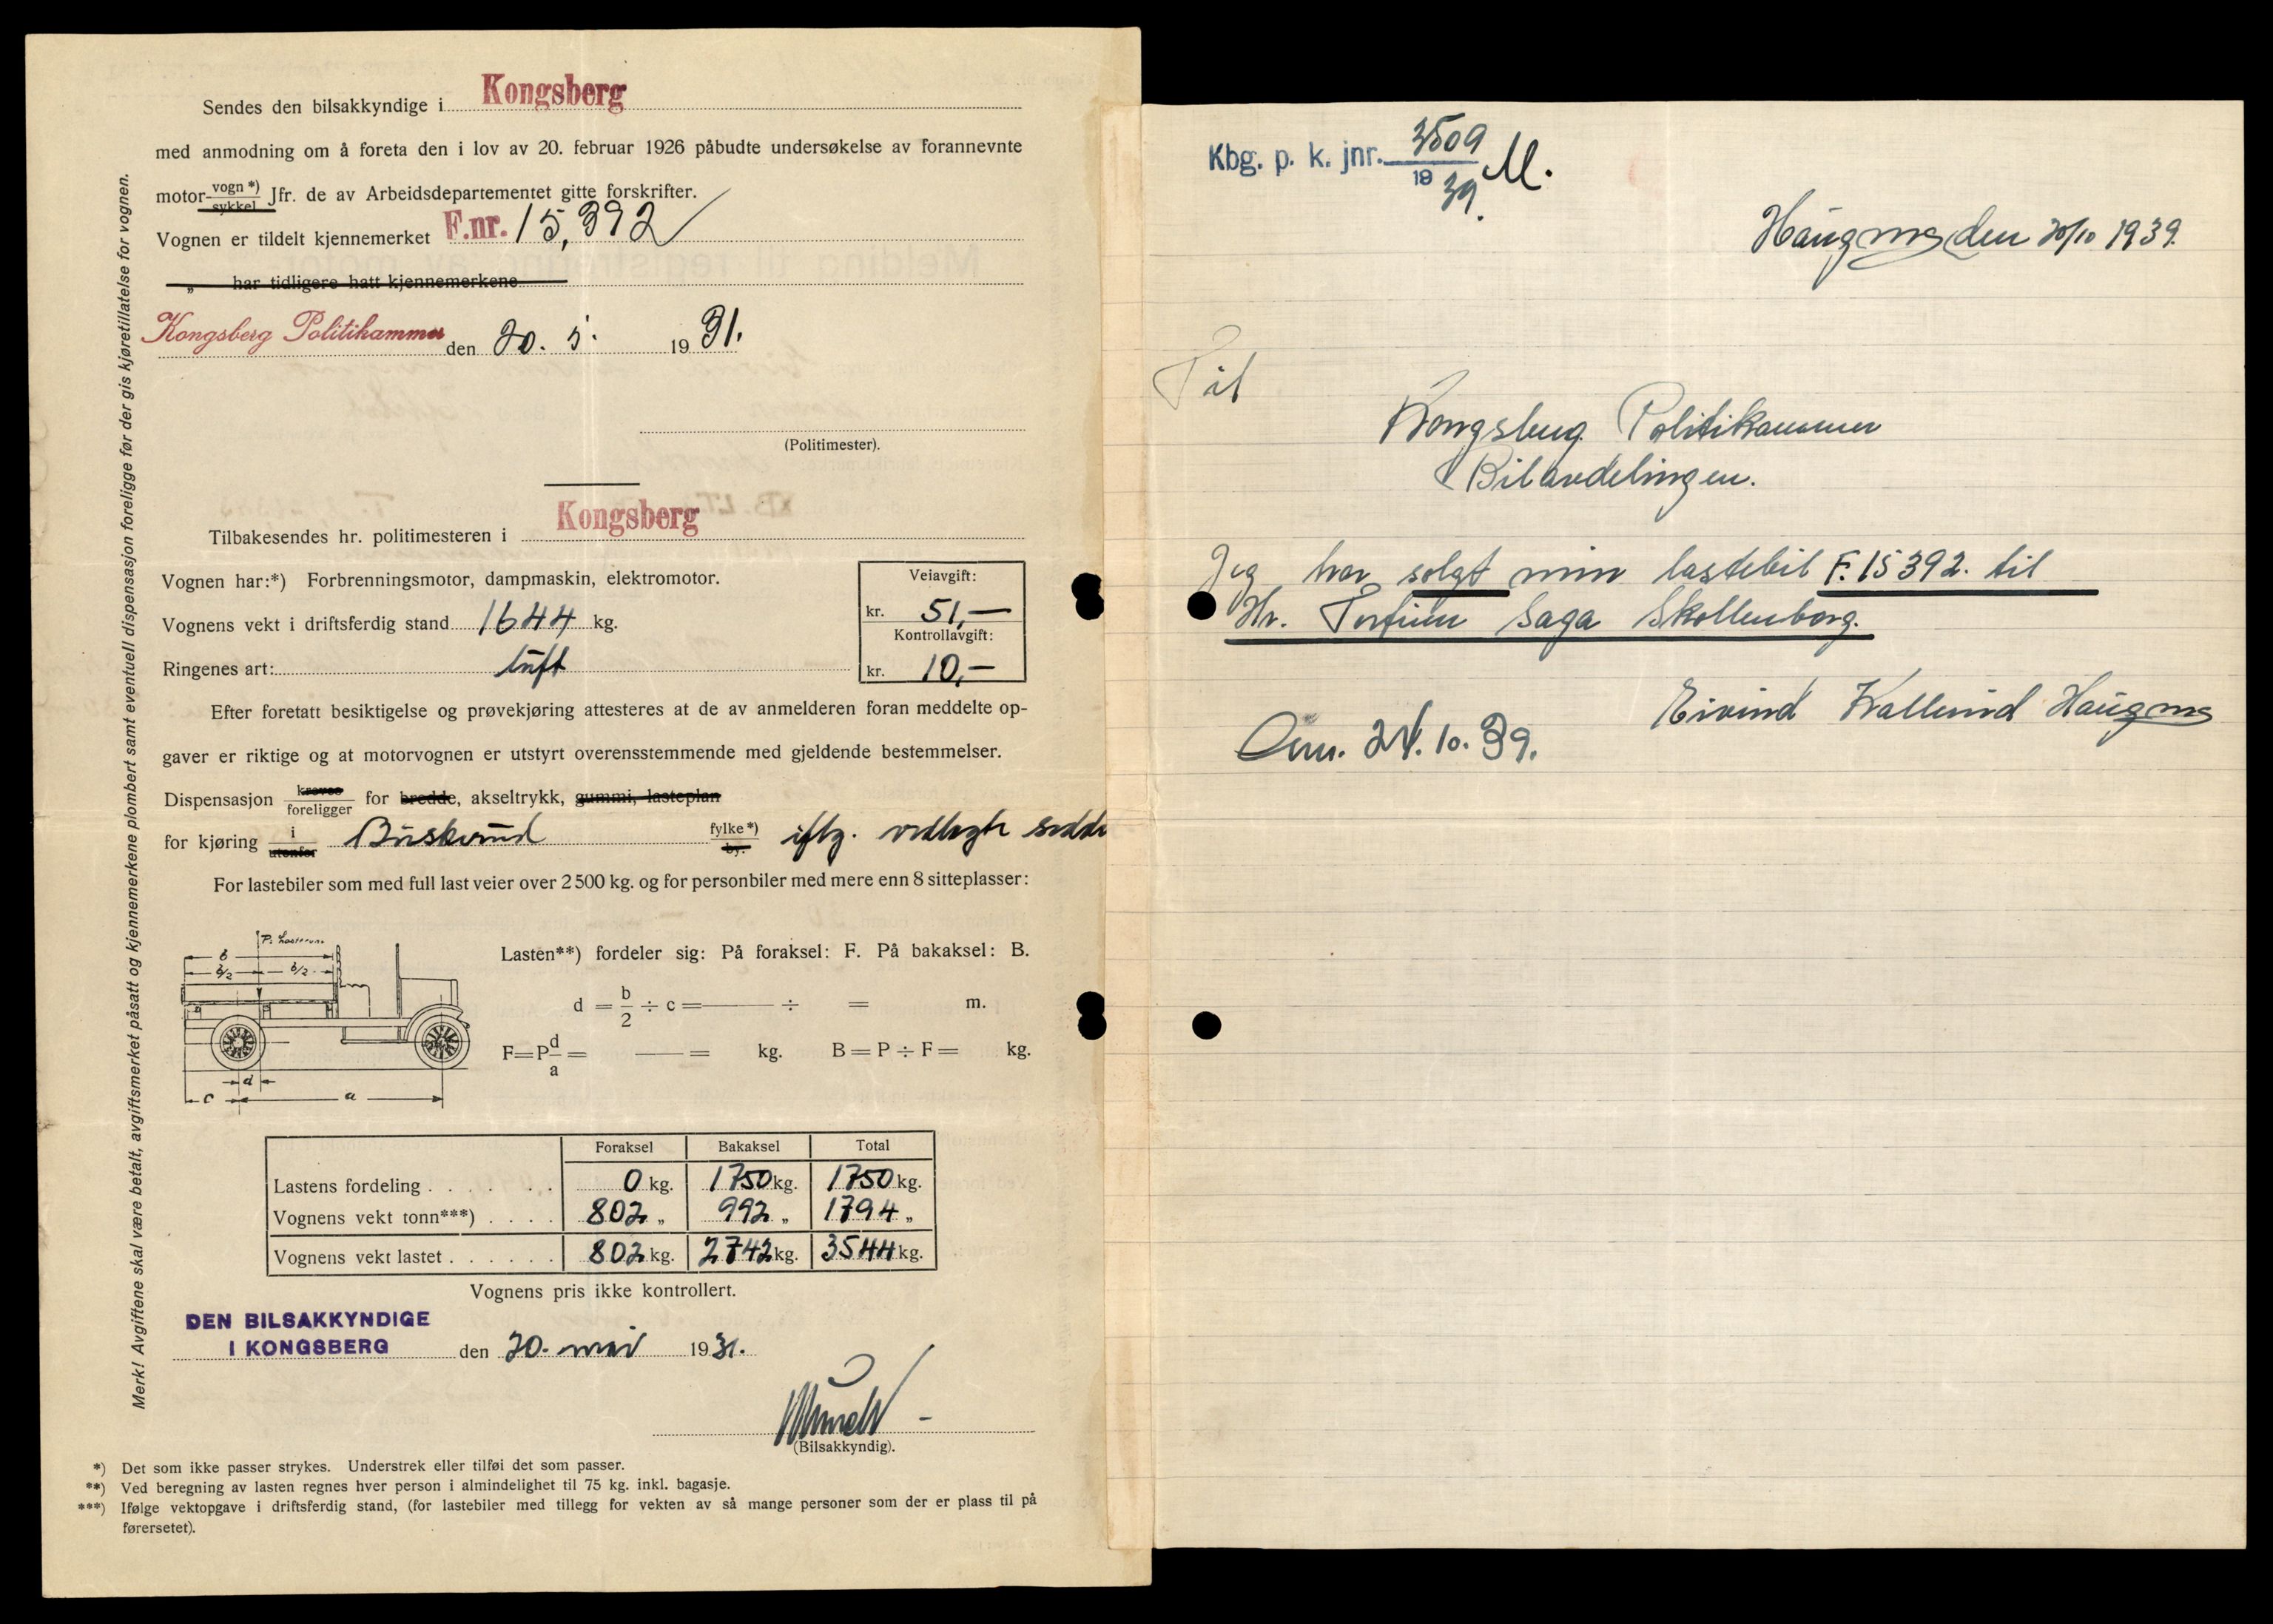 Sendes den bilsakkyndige i Kongsberg
med anmodning om å foreta den i lov av 20. februar 1926 påbudte undersøkelse av forannevnte
motor- vogn *) sykkel Jfr. de av Arbeidsdepartementet gitte forskrifter.
Vognen er tildelt kjennemerket F.nr. 15,392
„ har tidligere hatt kjennemerkene
Kongsberg Politikammer den 20. 5. 1931.
(Politimester).
Kongsberg
Tilbakesendes hr. politimesteren i
Vognen har:*) Forbrenningsmotor, dampmaskin, elektromotor.
Vognens vekt i driftsferdig stand 1644 kg.
Ringenes art: luft
Veiavgift:
kr. 51,—
Kontrollavgift:
kr. 10,—
Efter foretatt besiktigelse og prøvekjøring attesteres at de av anmelderen foran meddelte op-
gaver er riktige og at motorvognen er utstyrt overensstemmende med gjeldende bestemmelser.
Dispensasjon kreves foreligger for bredde, akseltrykk, gummi, lasteplan
for kjøring i utenfor Buskerud fylke*) by. iflg. vedlagte
For lastebiler som med full last veier over 2500 kg. og for personbiler med mere enn 8 sitteplasser:
b
b/2 b/2
d
c a
Lasten**) fordeler sig: På foraksel: F. På bakaksel: B.
d = b/2 ÷ c = ——— ÷ = m.
F=P d/a = —— = kg. B = P ÷ F = kg.
Foraksel Bakaksel Total
Lastens fordeling . . . . . . 0 kg. 1750 kg. 1750 kg.
Vognens vekt tonn***) . . . . 802 „ 992 „ 1794 „
Vognens vekt lastet . . . . . . 802 kg. 2742 kg. 3544 kg.
Vognens pris ikke kontrollert.
DEN BILSAKKYNDIGE
I KONGSBERG den 20. mai 1931.
(Bilsakkyndig).
*) Det som ikke passer strykes. Understrek eller tilføi det som passer.
**) Ved beregning av lasten regnes hver person i almindelighet til 75 kg. inkl. bagasje.
***) Ifølge vektopgave i driftsferdig stand, (for lastebiler med tillegg for vekten av så mange personer som der er plass til på
førersetet).
Merk! Avgiftene skal være betalt, avgiftsmerket påsatt og kjennemerkene plombert samt eventuell dispensasjon foreligge før der gis kjøretillatelse for vognen.
Kbg. p. k. jnr. 3509 M.
19 39.
den 20/10 1939.
Til
Kongsberg Politikammer
Bilavdelingen.
Jeg har solgt min lastebil F. 15392. til
Hr. Torfinn Saga Skollenborg.
Eivind
Om. 24. 10. 39.